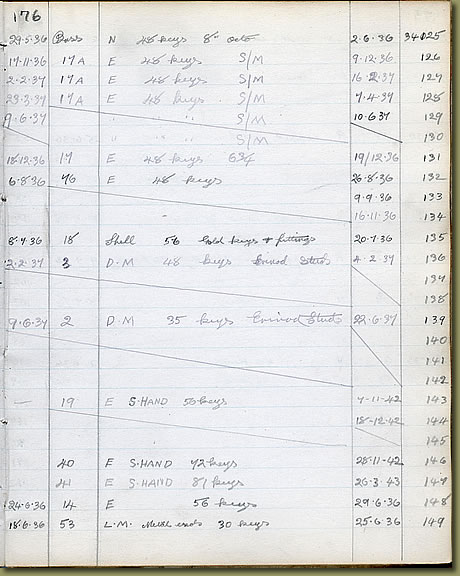 176
29.5.36 Bass N 48 keys 8" octo 2.6.36 34125
17.11.36 17A E 48 keys S/M 9.12.36 126
2.2.37 17A E 48 keys S/M 16.2.37 127
23.3.37 17A E 48 keys S/M 7.4.37 128
9.6.37 " " " S/M 10.6.37 129
S/M 130
18.12.36 17 E 48 keys 63/4 19/12.36 131
6.8.36 76 E 48 keys 26.8.36 132
9.9.36 133
16.11.36 134
8.7.36 18 Shell 56 Gold keys + fittings 20.7.36 135
2.2.37 3 D.M 48 keys Erinoid Studs 4.2.37 136
137
138
9.6.37 2 D.M 35 keys Erinoid Studs 22.6.37 139
140
141
142
— 19 E S.HAND 56 keys 7-11-42 143
18-12-42 144
145
40 E S.HAND 72 keys 28-11-42 146
41 E S.HAND 81 keys 26.3.43 147
24.6.36 14 E 56 keys 29.6.36 148
18.6.36 53 L.M. Metal ends 30 keys 25.6.36 149